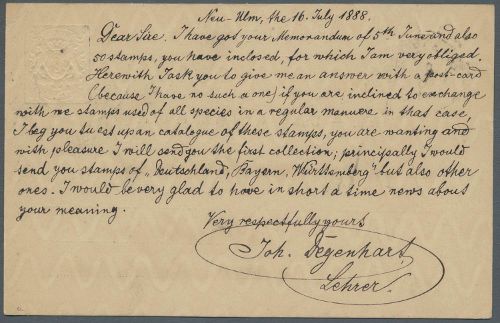 Neu-Ulm, the 16. July 1888.
Dear Sire. I have got your Memorandum of 5th June and also
50 stamps, you have inclosed, for which I am very obliged.
Herewith I ask you to give me an answer with a post-card
(because I have no such a one) if you are inclined to exchange
with me stamps used of all species in a regular manure in that case
I beg you to est upan catalogue of these stamps, you are wanting and
with pleasure I will send you the first collection; principally I would
send you stamps of „Deutschland, Bayern, Württemberg" but also other
ones. I would be very glad to have in short a time news about
your meaning.
Very respectfully yours
Joh. Degenhart,
Lehrer.